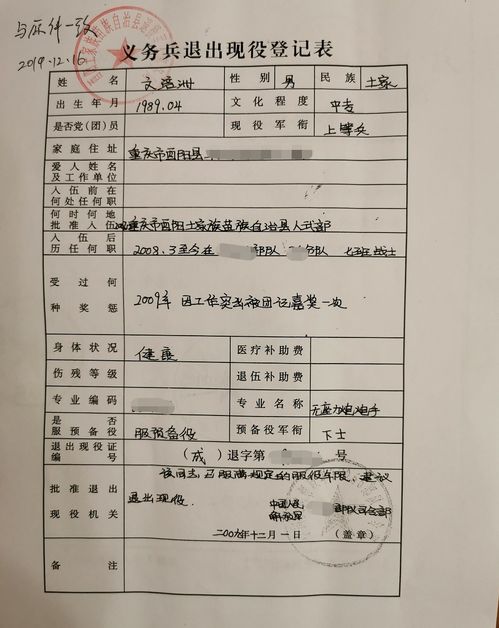 与原件一致
2019.12.16
义务兵退出现役登记表
姓名 文浩洲 性别 男 民族 土家
出生年月 1989.04 文化程度 中专
是否党(团)员 现役军衔 上等兵
家庭住址 重庆市酉阳县
爱人姓名及工作单位
入伍前在何处任何职
何时何地批准入伍 重庆市酉阳土家族苗族自治县人武部
入伍后历任何职 2008.3至今在 部队 分队 七班战士
受过何种奖惩 2009年 因工作突出被团记嘉奖一次
身体状况 健康 医疗补助费
伤残等级 退伍补助费
专业编码 专业名称 无座力炮炮手
是否服预备役 服预备役 预备役军衔 下士
退出现役证编号 (成)退字第 号
批准退出现役机关 该同志,已服满规定的服役年限,建议
退出现役.
中国人民解放军 部队司令部
二00九年十二月一日 (盖章)
备注